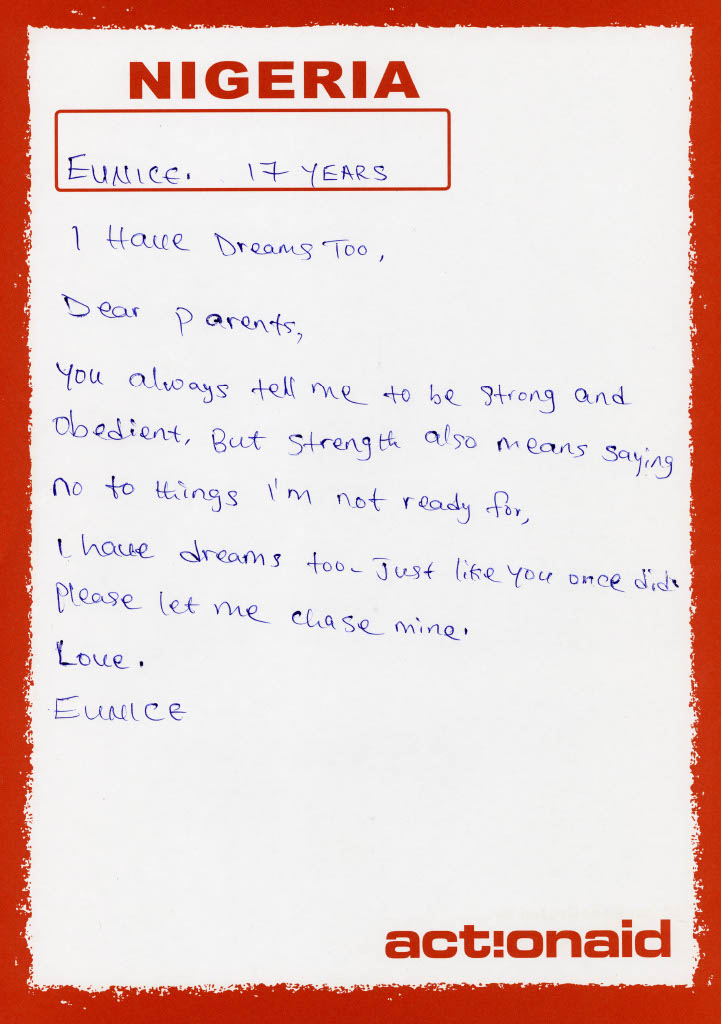 NIGERIA
EUNICE. 17 YEARS
I Have Dreams Too,
Dear parents,
You always tell me to be strong and
obedient. But strength also means saying
no to things I'm not ready for,
I have dreams too - Just like you once did.
please let me chase mine.
Love.
EUNICE
act!onaid